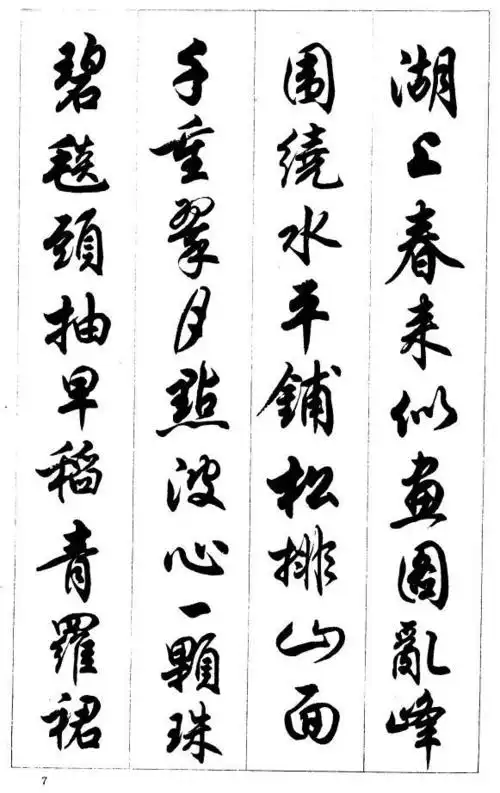 湖上春来似畫圖亂峰
圍繞水平鋪松排山面
千重翠月點波心一顆珠
碧毯頭抽早稻青羅裙
7